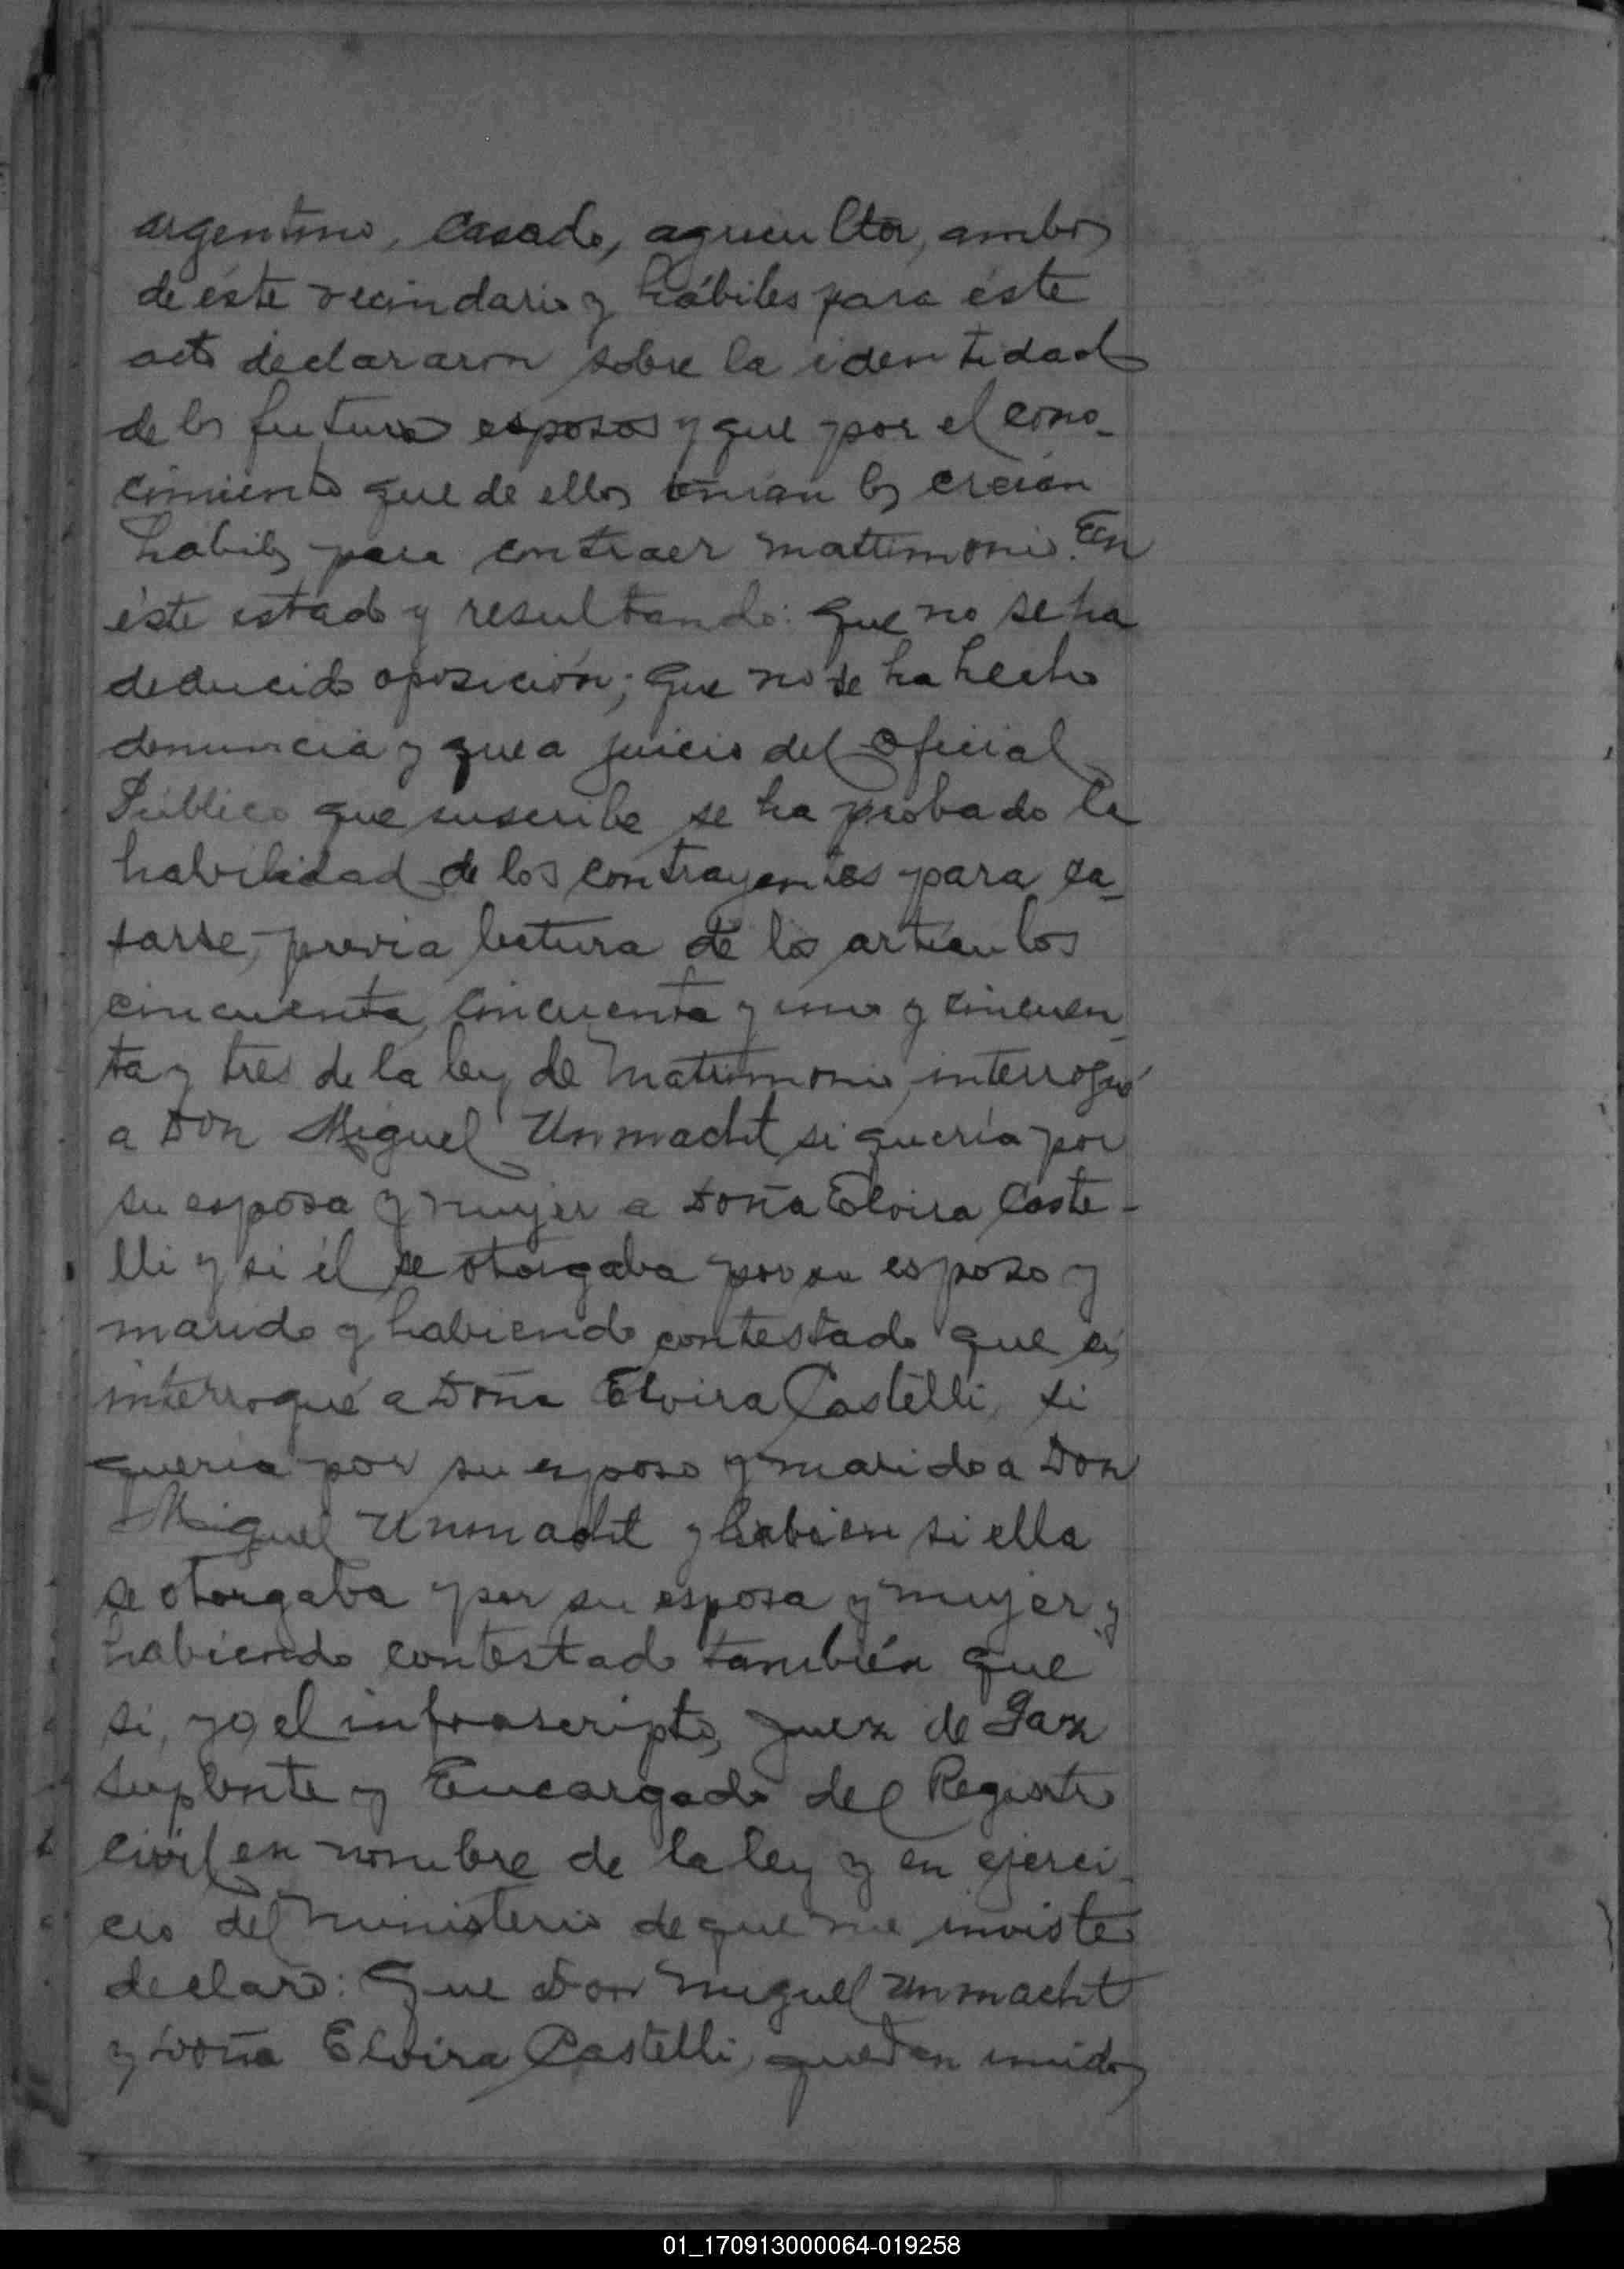 argentino, casado, agricultor, ambos
de éste vecindario y hábiles para éste
acto declararon sobre la identidad
de los futuros esposos y que por el cono-
cimiento que de ellos tenian los creían
habiles para contraer matrimonio. En
éste estado y resultando: que no se ha
deducido oposición; que no se ha hecho
denuncia y que a juicio del Oficial
Público que suscribe se ha probado la
habilidad de los contrayentes para ca-
sarse, previa lectura de los artículos
cincuenta, cincuenta y uno y cincuen-
ta y tres de la ley de Matrimonio, interrogué
a Don Miguel Unmacht si quería por
su esposa y mujer a Doña Elvira Caste-
lli y si él se otorgaba por su esposo y
marido y habiendo contestado que si,
interrogué a Doña Elvira Castelli, si
quería por su esposo y marido a Don
Miguel Unmacht y si ella
se otorgaba por su esposa y mujer y
habiendo contestado también que
si, yo, el infrascripto, Juez de Paz
Suplente y Encargado del Registro
Civil en nombre de la ley y en ejerci-
cio del ministerio de que me inviste
declaro: Que Don Miguel Unmacht
y Doña Elvira Castelli, quedan unidos
01_170913000064-019258